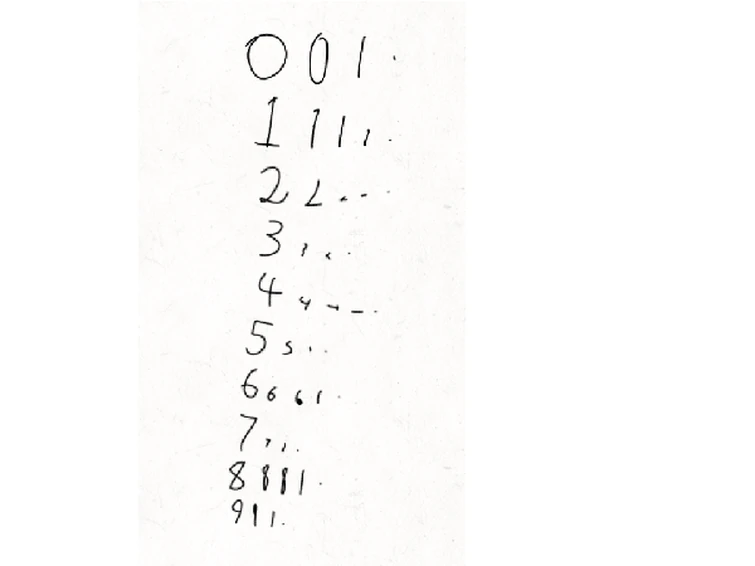 0 0 1 .
1 1 1 , .
2 2 . - .
3 , . .
4 4 - - .
5 5 . .
6 6 6 1 .
7 , , .
8 8 8 1 .
9 1 1 .